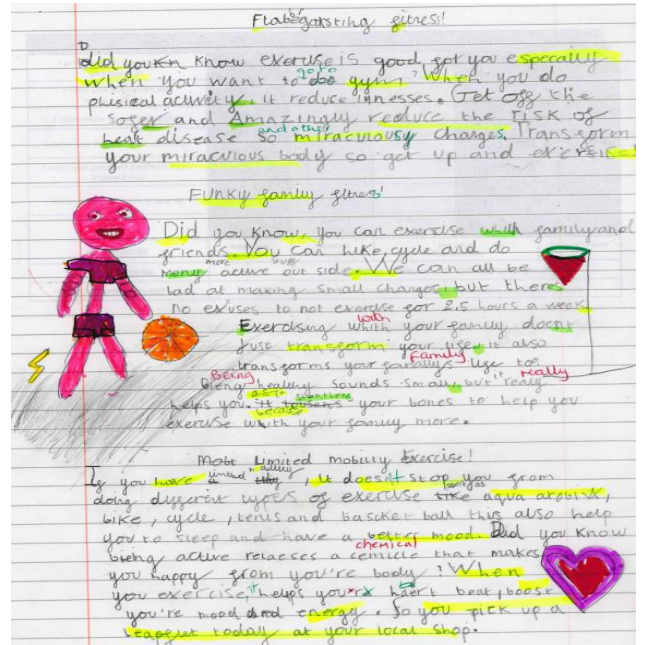 Flabergasting fitness!
Did you know exercise is good for you especally
when you want to go to gym? When you do
phisical activity, it reduce illnesses. Get off the
sofer and Amazingly reduce the risk of
heart disease so and other miraculousy changes. Transform
your miraculous body so get up and exercise!
Funky family fitness!
Did you know, you can exercise with family and
friends. You can hike, cycle and do
meny more active out side. We can all be
bad at making small changes, but theres
no exuses to not exercise for 2.5 hours a week.
Exercising with your family doesnt
just transform your life, it also
transforms your family's Family life to.
Being healthy sounds small, but it really
helps you. as it strenthens because your bones to help you
exercise with your family more.
Limited mobility Exercise!
If you have limited mobility, it doesn't stop you from
doing different types of exercise such as aqua arobix,
bike, cycle, tenis and bascket ball this also help
you to sleep and have a better mood. Did you know
being active relaeses a chemical that makes
you happy from you're body? When
you exercise, it helps your heart beat, boost
you're mood and energy. So you pick up a
leaflet today at your local shop.